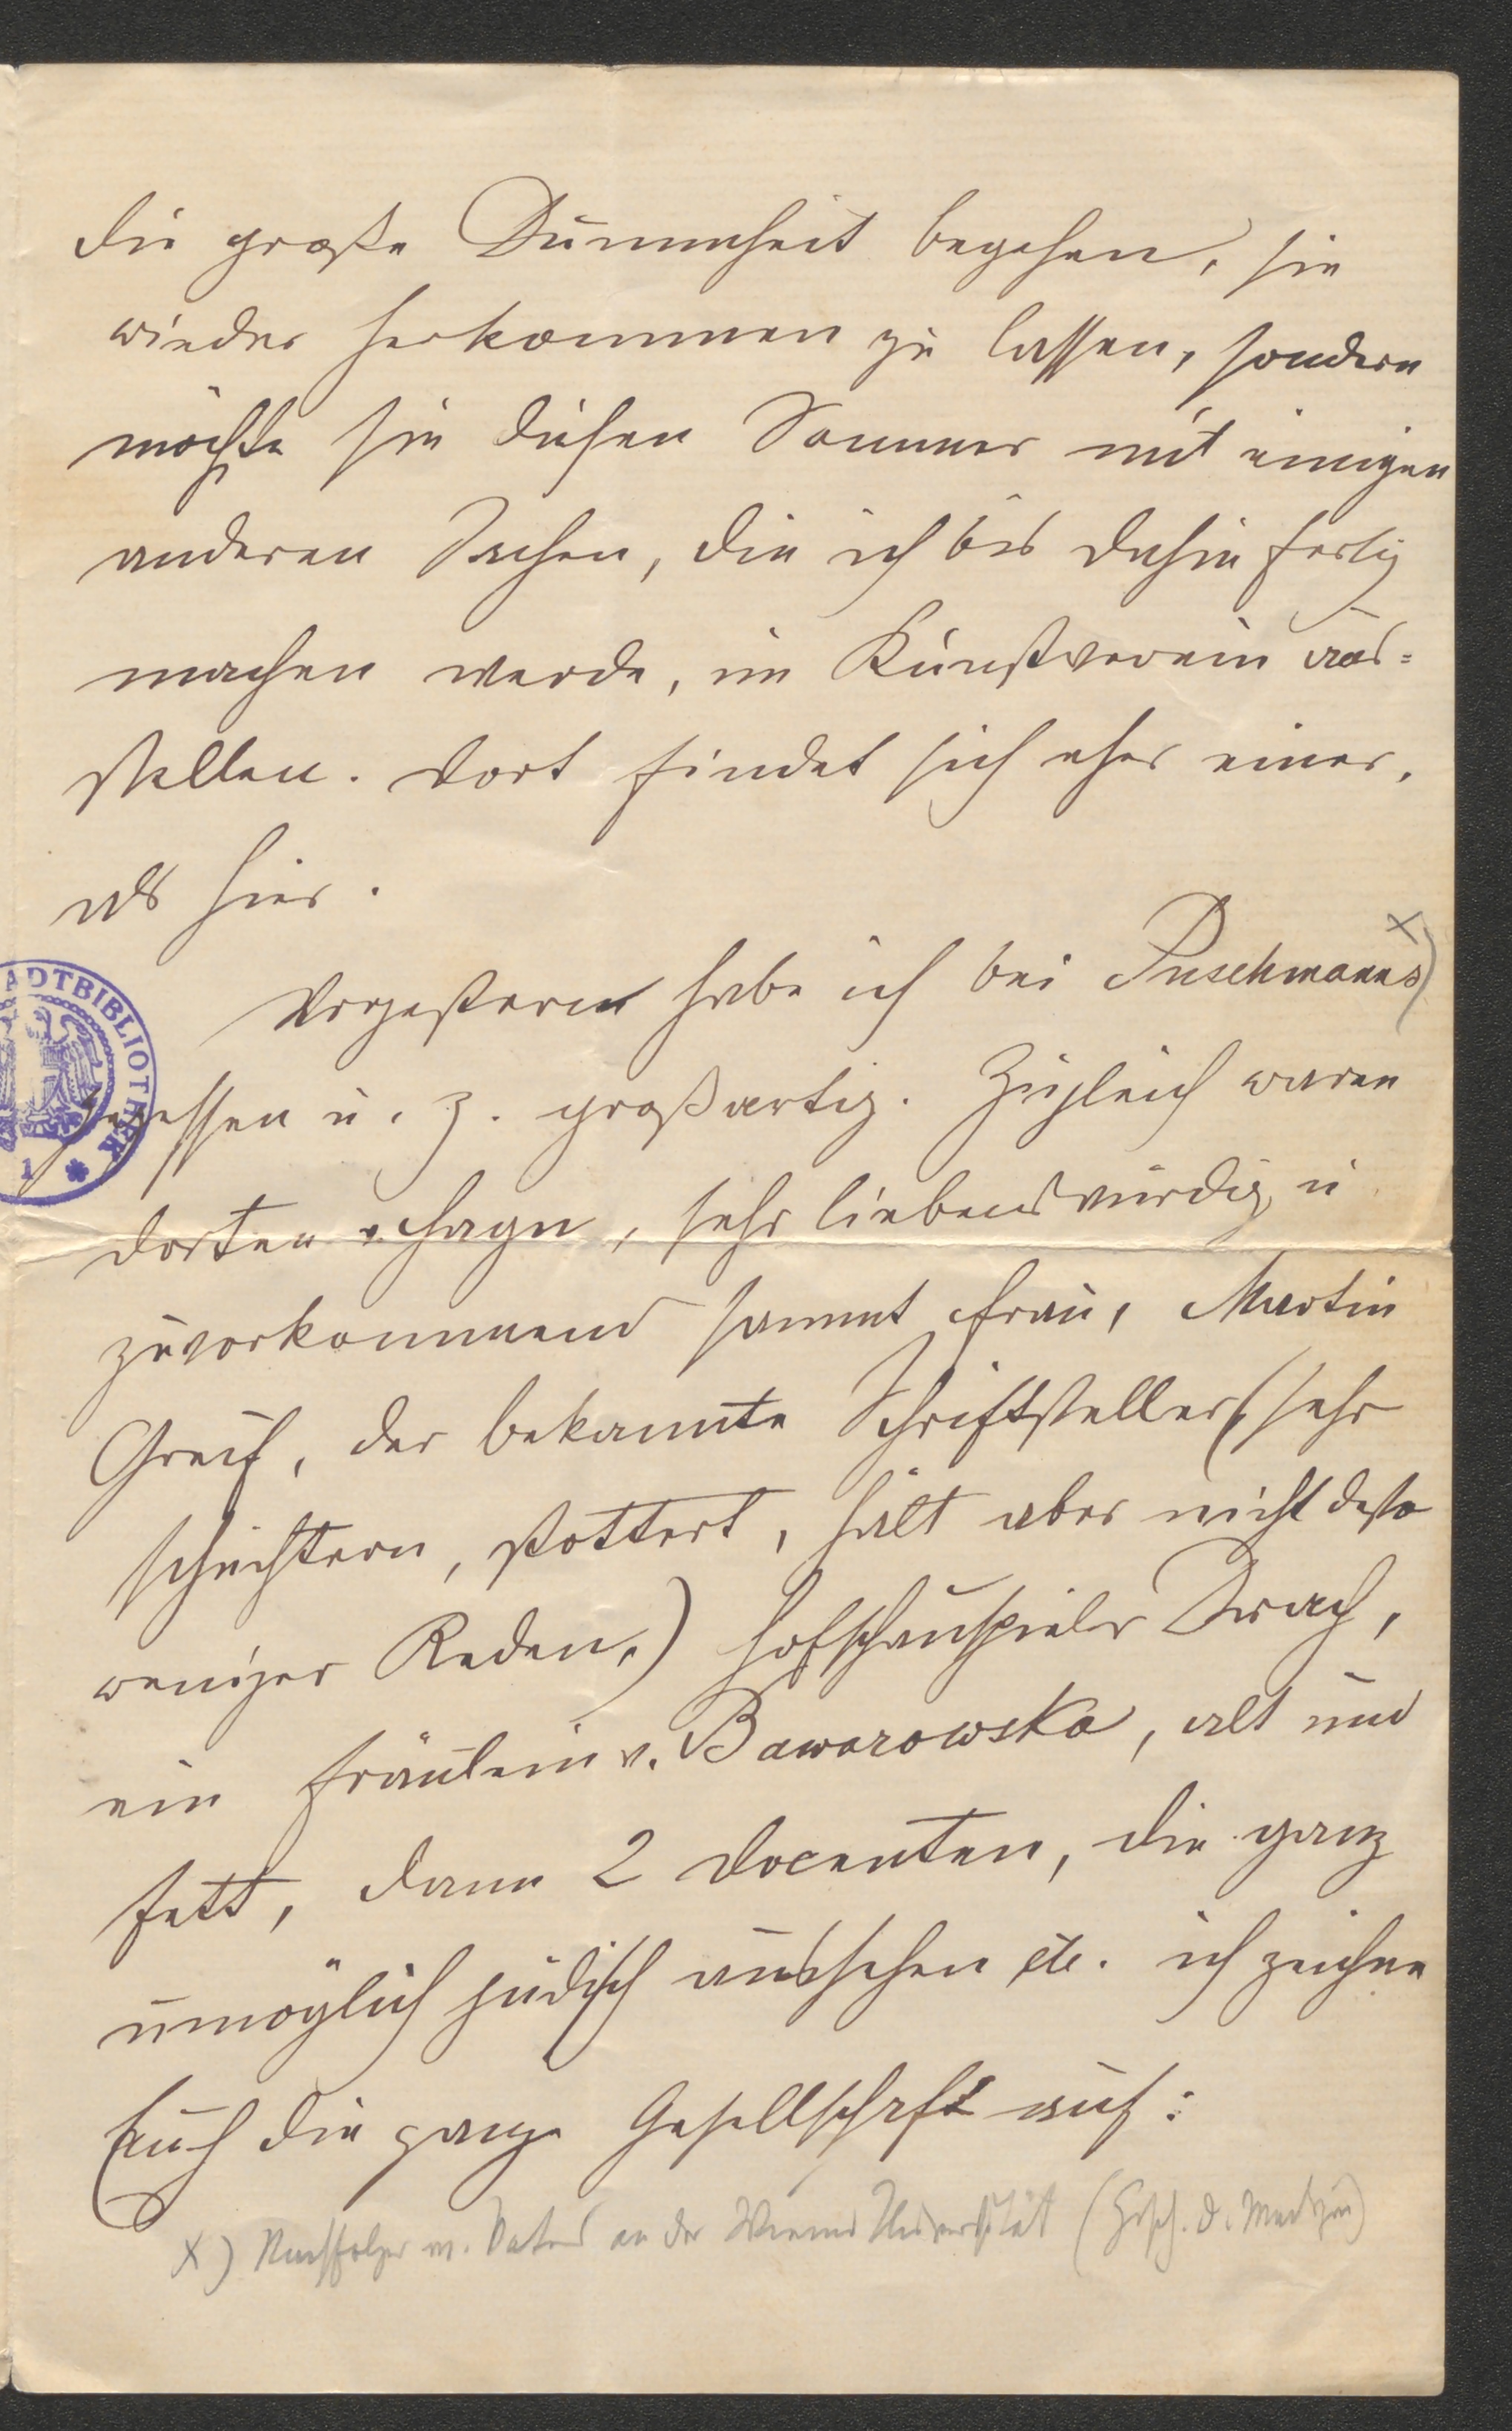 die große Dummheit begehen, sie
wieder herkommen zu lassen, sondern
möchte sie diesen Sommer mit einigen
anderen Sachen, die ich bis dahin fertig
machen werde, im Kunstverein aus=
stellen. Dort findet sich eher einer,
als hier.
Vorgestern habe ich bei Puschmanns x)
gegessen u. z. großartig. Zugleich waren
dorten v. Hagn, sehr liebenswürdig u
zuvorkommend sammt Frau, Martin
Greif, der bekannte Schriftsteller, (sehr
schüchtern, stottert, hält aber nicht desto
weniger Reden,) Hofschauspieler Drach,
ein Fräulein v. Baworowska, alt und
fett, dann 2 Docenten, die ganz
unmöglich jüdisch aussehen etc. ich zeichne
Euch die ganze Gesellschaft auf:
x) Nachfolger m. Vaters an der Wiener Universität (Gesch. d. Medizin)
ADTBIBLIOTHEK
1